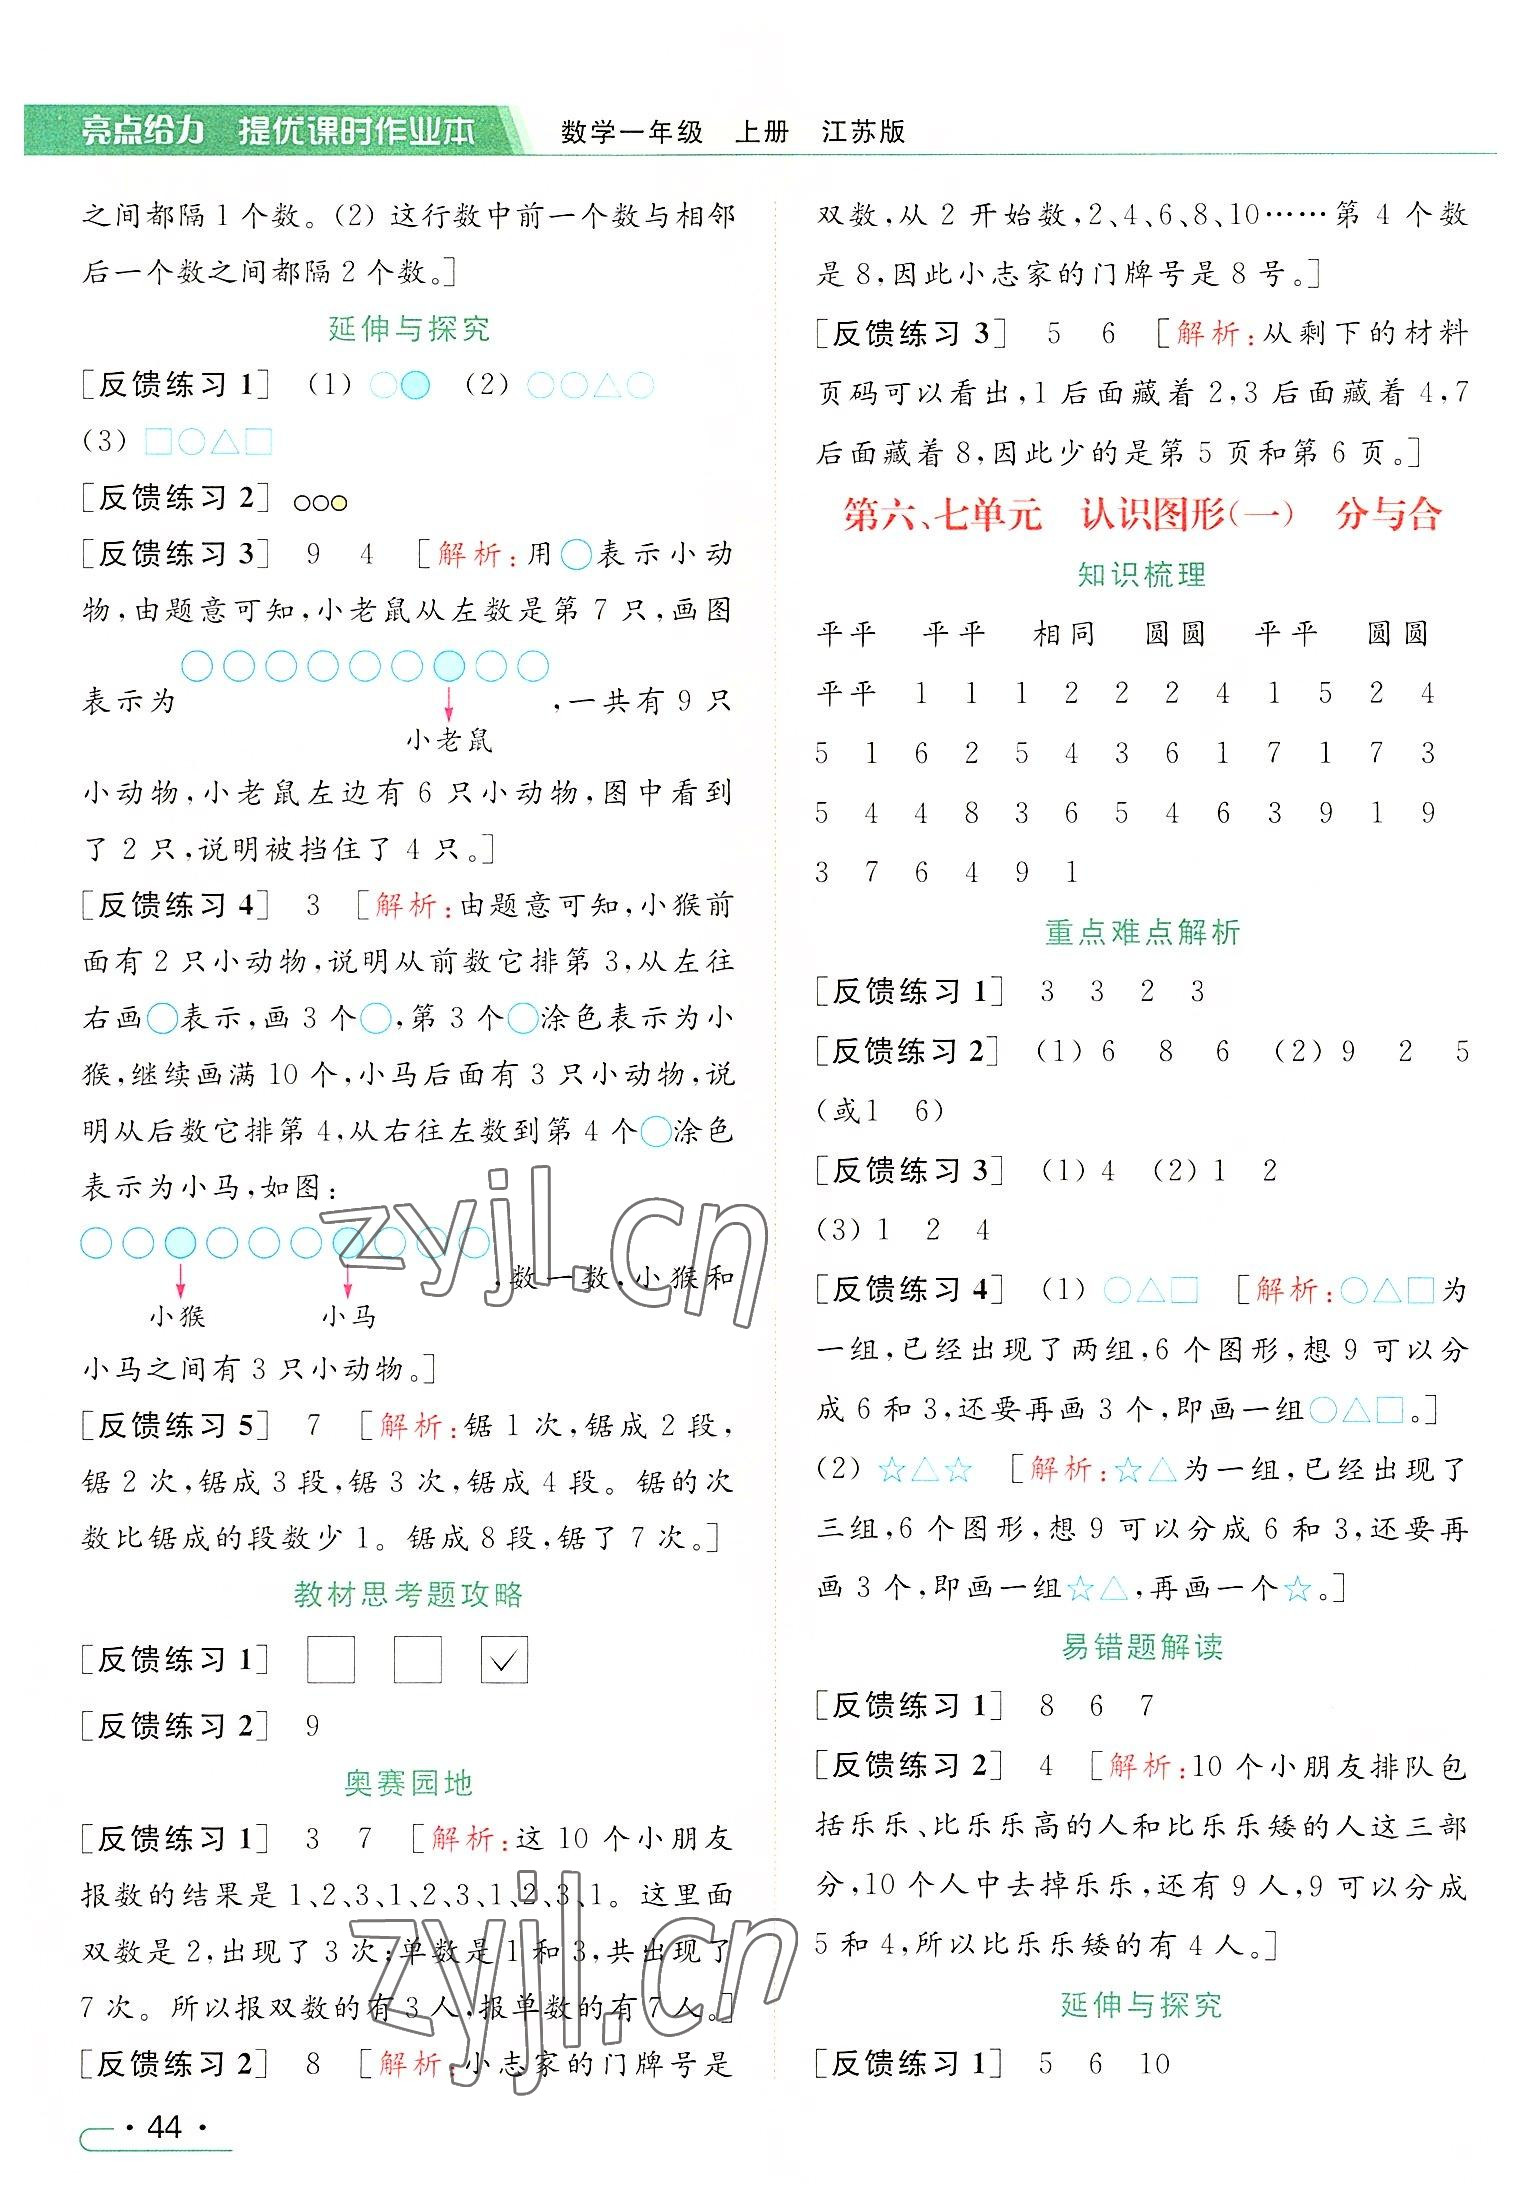 亮点给力 提优课时作业本 数学一年级 上册 江苏版
之间都隔1个数。(2) 这行数中前一个数与相邻
后一个数之间都隔2个数。]
延伸与探究
[反馈练习1] (1) ○● (2) ○○△○
(3) □○△□
[反馈练习2] ○○●
[反馈练习3] 9 4 [解析:用○表示小动
物,由题意可知,小老鼠从左数是第7只,画图
表示为○○○○○○●○○,一共有9只
小老鼠
小动物,小老鼠左边有6只小动物,图中看到
了2只,说明被挡住了4只。]
[反馈练习4] 3 [解析:由题意可知,小猴前
面有2只小动物,说明从前数它排第3,从左往
右画○表示,画3个○,第3个○涂色表示为小
猴,继续画满10个,小马后面有3只小动物,说
明从后数它排第4,从右往左数到第4个○涂色
表示为小马,如图:
○○●○○○●○○○,数一数,小猴和
小猴 小马
小马之间有3只小动物。]
[反馈练习5] 7 [解析:锯1次,锯成2段,
锯2次,锯成3段,锯3次,锯成4段。锯的次
数比锯成的段数少1。锯成8段,锯了7次。]
教材思考题攻略
[反馈练习1] □ □ ☑
[反馈练习2] 9
奥赛园地
[反馈练习1] 3 7 [解析:这10个小朋友
报数的结果是1、2、3、1、2、3、1、2、3、1。这里面
双数是2,出现了3次;单数是1和3,共出现了
7次。所以报双数的有3人,报单数的有7人。]
[反馈练习2] 8 [解析:小志家的门牌号是
·44·
双数,从2开始数,2、4、6、8、10……第4个数
是8,因此小志家的门牌号是8号。]
[反馈练习3] 5 6 [解析:从剩下的材料
页码可以看出,1后面藏着2,3后面藏着4,7
后面藏着8,因此少的是第5页和第6页。]
第六、七单元 认识图形(一) 分与合
知识梳理
平平 平平 相同 圆圆 平平 圆圆
平平 1 1 1 2 2 2 4 1 5 2 4
5 1 6 2 5 4 3 6 1 7 1 7 3
5 4 4 8 3 6 5 4 6 3 9 1 9
3 7 6 4 9 1
重点难点解析
[反馈练习1] 3 3 2 3
[反馈练习2] (1)6 8 6 (2)9 2 5
(或1 6)
[反馈练习3] (1)4 (2)1 2
(3)1 2 4
[反馈练习4] (1) ○△□ [解析:○△□为
一组,已经出现了两组,6个图形,想9可以分
成6和3,还要再画3个,即画一组○△□。]
(2) ☆△☆ [解析:☆△为一组,已经出现了
三组,6个图形,想9可以分成6和3,还要再
画3个,即画一组☆△,再画一个☆。]
易错题解读
[反馈练习1] 8 6 7
[反馈练习2] 4 [解析:10个小朋友排队包
括乐乐、比乐乐高的人和比乐乐矮的人这三部
分,10个人中去掉乐乐,还有9人,9可以分成
5和4,所以比乐乐矮的有4人。]
延伸与探究
[反馈练习1] 5 6 10
zyjl.cn
zyjl.cn